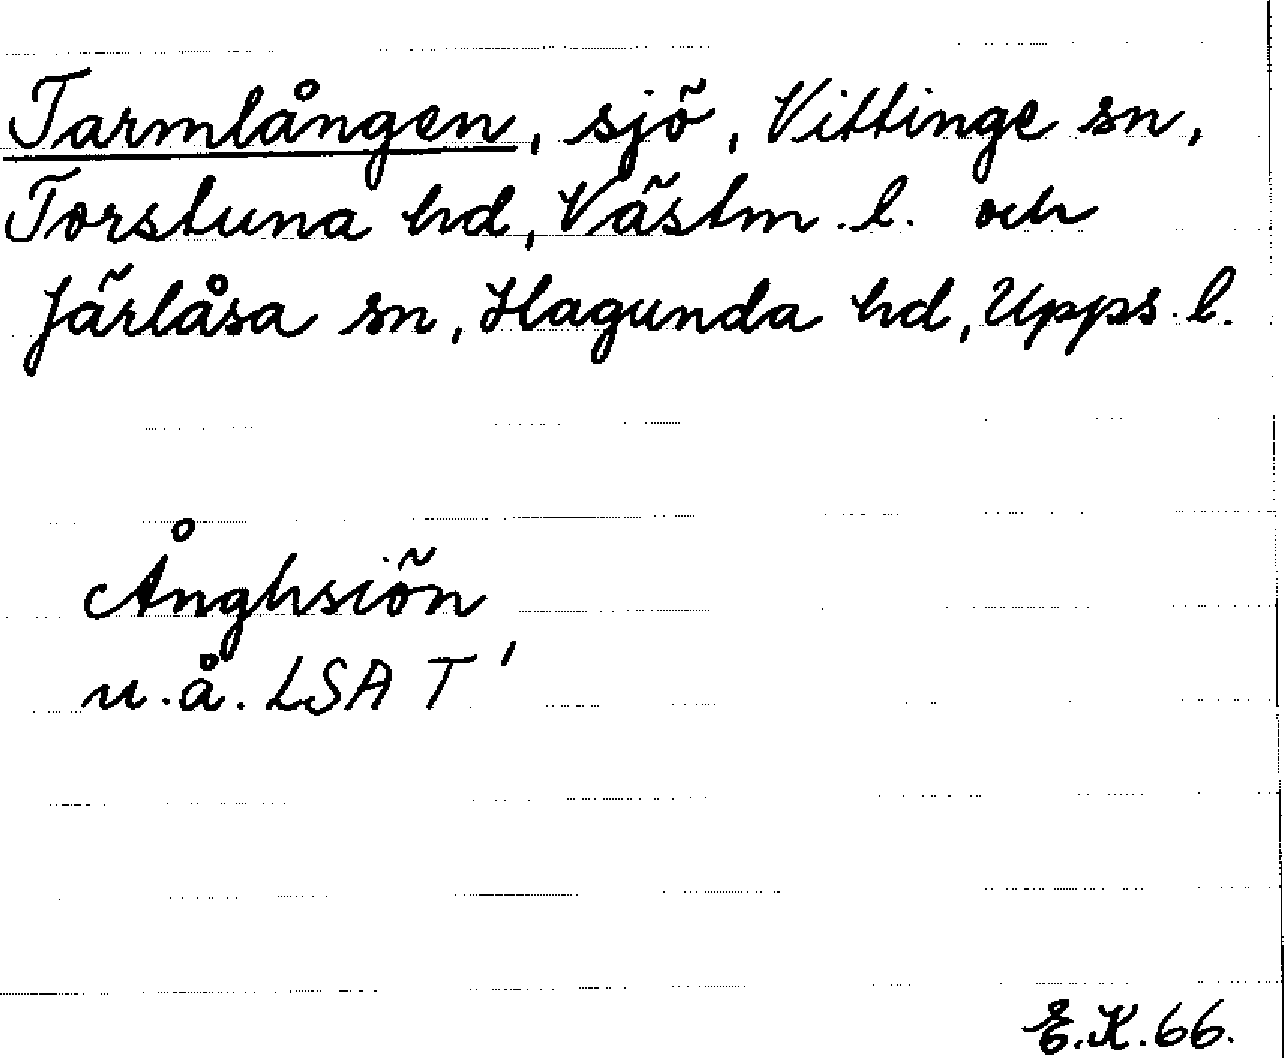 Tarmlången, sjö, Vittinge sn,
Torstuna hd, Västm. l. och
Järlåsa sn, Hagunda hd, Upps. l.
Ånghsiön
u.å. LSA T'
E.K. 66.